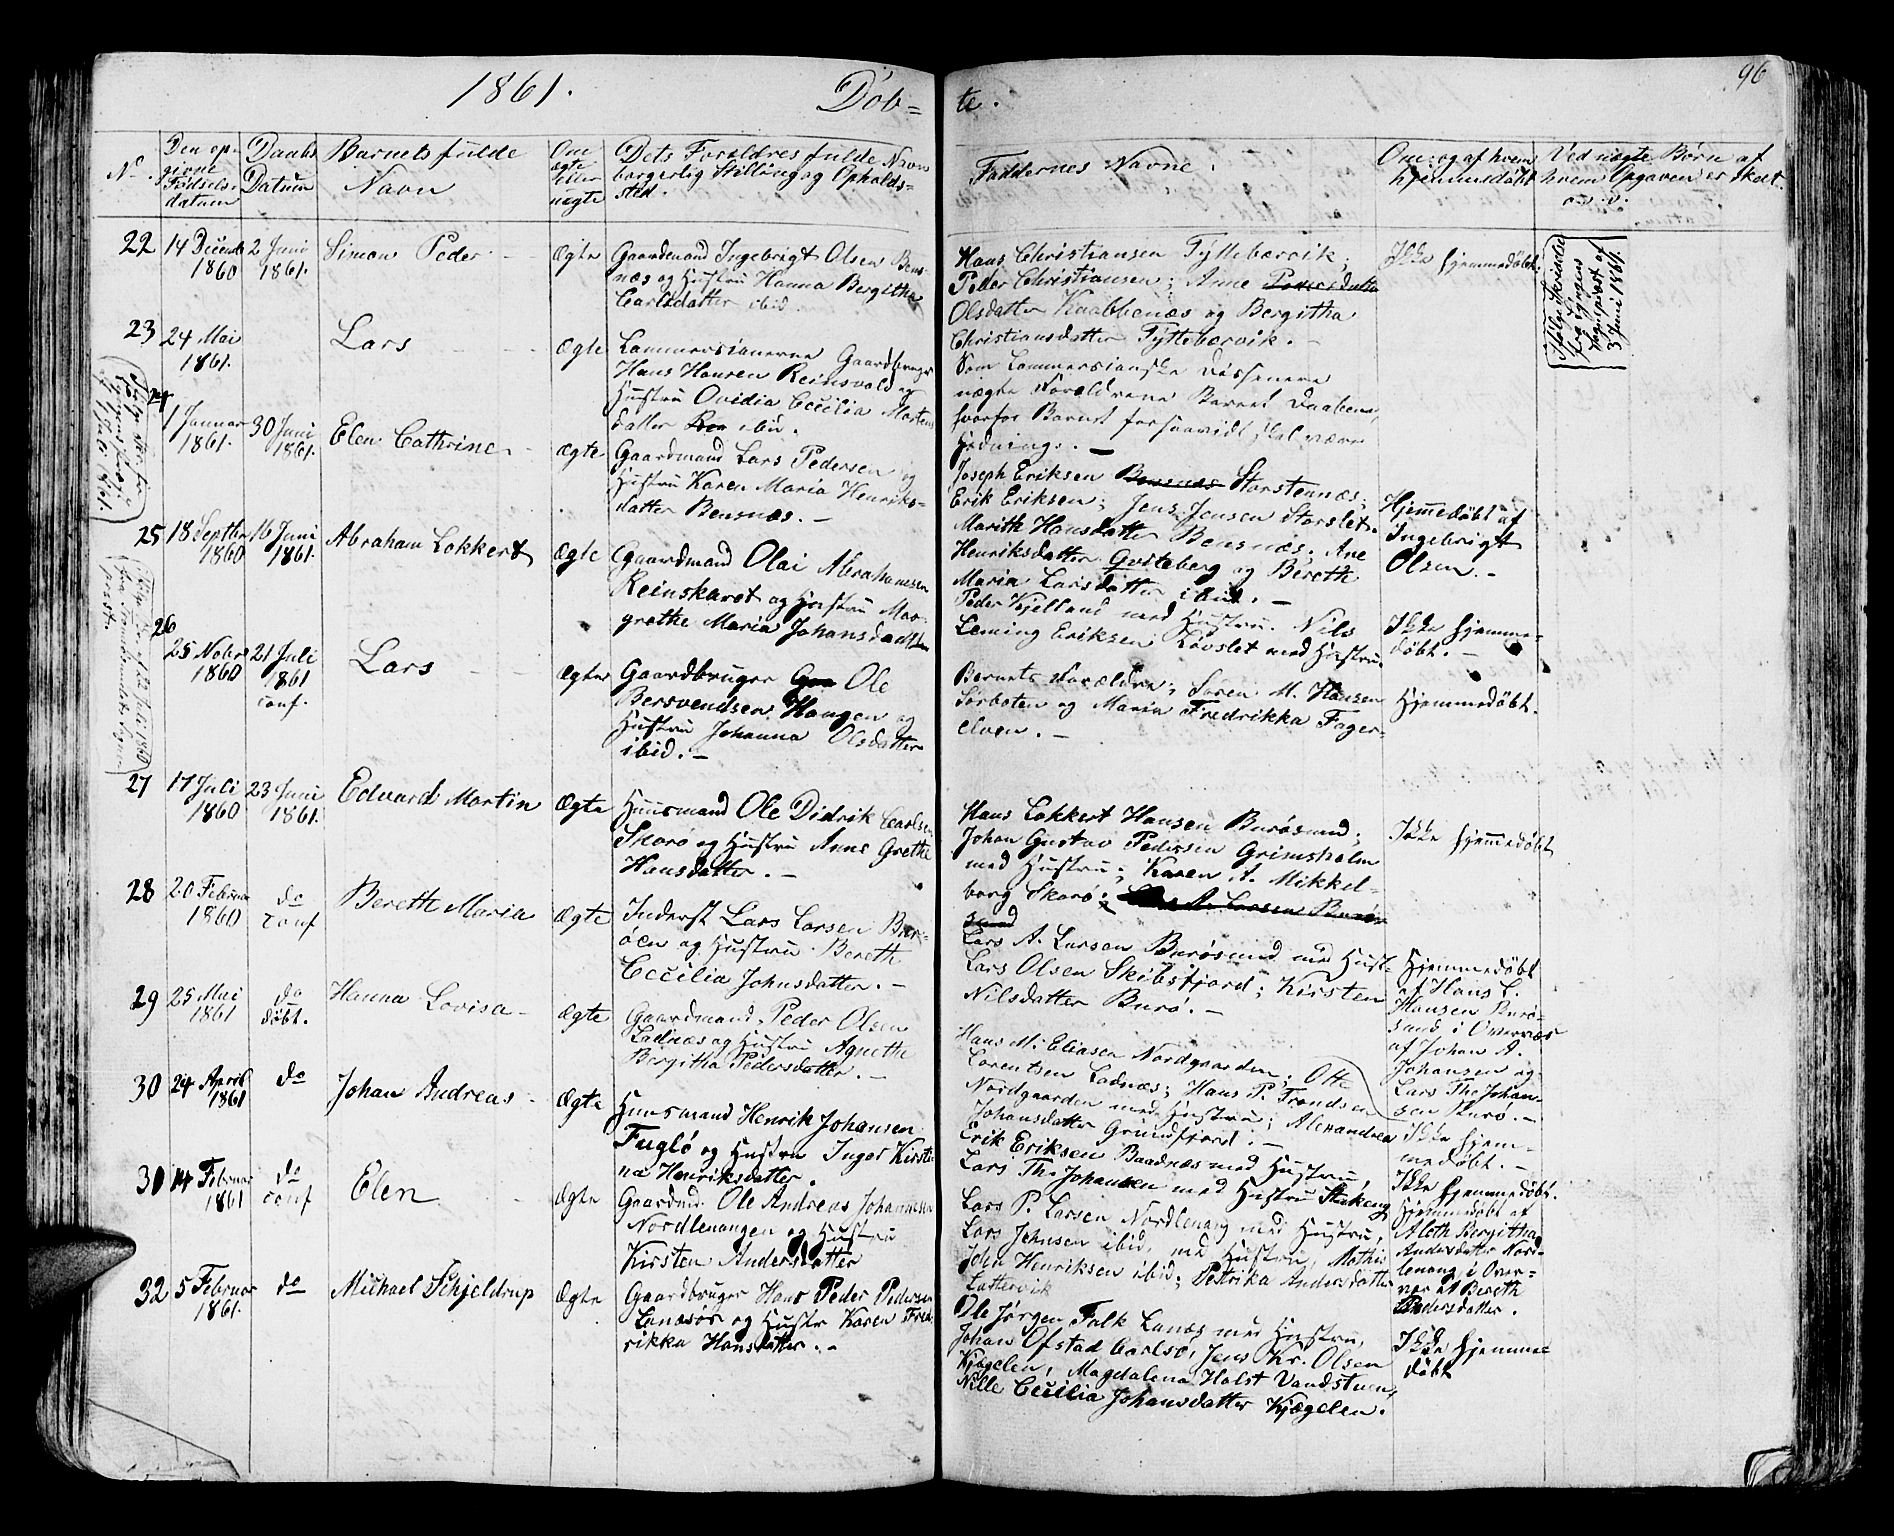 1861.
Døb=
te.
96
No.
Den op-
givne
Fødsels-
datum
Daabs
Datum
Barnets fulde
Navn
Om
ægte
eller
uægte
Dets Forældres fulde Navn
borgerlig Stilling og Opholds-
sted.
Faddernes Navne.
Om og af hvem
hjemmedøbt
Ved uægte Børn af
hvem Opgaven er skeet
o.s.v.
22
14 Decemb
1860
2 Juni
1861.
Simon Peder
Ægte
Gaardmand Ingebrigt Olsen Bens-
næs og Hustru Hanna Bergitha
Carlsdatter ibid.
Hans Christiansen Tyttebærvik;
Peder Christiansen; Anne Pedersdatter
Olsdatter Kaabbenæs og Bergitha
Christiansdatter Tyttebærvik.-
Ikke hjemmedøbt.
Ifølge Skrivelse
fra Lyngens
Sognepræst af
3 Juni 1861.
23
24 Mai
1861.
Lars
Ægte
Lammersianerne Gaardbruger
Hans Hansen Reinsvold og
Hustru Ovidia Cecilia Mortens
datter ibid.
Som Lammersianske Dissentere
nægte Forældrene Barnet Daaben,
hvorfor Barnet forsaavidt skal være
Hedning.-
24
1 Januar
1861.
30 Juni
1861.
Elen Cathrine
Ægte
Gaardmand Lars Pedersen og
Hustru Karen Maria Henriks-
datter Bensnæs.-
Joseph Eriksen Bensnæs Storstennæs;
Erik Eriksen; Jens Jensen Storslet.
Marith Hansdatter Bensnæs. Ane
Henriksdatter Qviteberg og Bereth
Maria Larsdatter ibid.-
Hjemmedøbt af
Ingebrigt
Olsen.-
25
18 Septbr
1860
16 Juni
1861.
Abraham Lokkert
Ægte
Gaardmand Olai Abrahamsen
Reinskaret og Hustru Mar-
grethe Maria Johansdatter
Peder Kjelland med Hustru. Nils
Leming Eriksen Løvslet med Hustru.
Ikke hjemme-
døbt.-
26
25 Nobr
1860
21 Juli
1861
conf.
Lars
Ægte
Gaardbruger Gaa Ole
Bersvendsen Haugen og
Hustru Johanna Olsdatter
ibid.-
Barnets Forældre; Søren M. Hansen
Sørboten og Maria Fredrikka Fager-
elven.-
Hjemmedøbt.
27
17 Juli
1860
23 Juni
1861.
Edvard Martin
Ægte
Huusmand Ole Didrik Carlsen
Skorø og Hustru Anne Grethe
Hansdatter.-
Hans Lokkert Hansen Burøsund;
Johan Gustav Pedersen Grimsholm
med Hustru; Karen A. Mikkel-
borg Skorø; A. Larsen Burø-
sund
Ikke hjemmedøbt
28
20 Februar
1860
do
conf
Bereth Maria
Ægte
Inderst Lars Larsen Bur-
øen og Hustru Bereth
Cecilia Johnsdatter.-
Lars A. Larsen Burøsund med Hust.
Lars Olsen Skibsfjord; Kirsten
Nilsdatter Burø.-
Hjemmedøbt
af Hans L.
Hansen Burø-
sund i Overvær
af Johan A.
Johansen og
Lars Th. Johan-
sen Burø.-
29
25 Mai
1861
do
døbt.
Hanna Lovisa
Ægte
Gaardmand Peder Olsen
Ladnæs og Hustru Agnethe
Bergitha Pedersdatter.-
Hans M. Eliasen Nordgaarden; Otte
Lorentsen Ladnæs; Hans P. Trondsen
Nordgaarden med Hustru; Alexandrea
Johansdatter Grundfjord.-
Ikke hjem-
medøbt.-
30
24 April
1861
do
Johan Andreas
Ægte
Huusmand Henrik Johansen
Fuglø og Hustru Inger Kirsti-
na Henriksdatter.
Erik Eriksen Baadnæs med Hustru,
Lars Th. Johansen med Hustru Stakeng
Ikke hjemmedøbt.
30
14 Februar
1861
do
conf
Elen
Ægte
Gaardmd. Ole Andreas Johannesen
Nordlenangen og Hustru
Kirsten Andersdatter
Lars P. Larsen Nordlenang med Hustru,
Lars Johnsen ibid. med Hustru, Mathis
John Henriksen ibid; Petrika Andersdatter
Lattervik
Hjemmedøbt af
Aleth Bergitha
Andersdatter Nor-
lenang i Over-
vær af Bereth
Pedersdatter.
32
5 Februar
1861.
do
Michael Schjeldrup
Ægte
Gaardbruger Hans Peder Pedersen
Lanæsør og Hustr Karen Fred-
rikka Hansdatter.-
Ole Jørgen Falk Lanæs med Hustru,
Johan Ofstad Carlsø, Jens Kr. Olsen
Kjøgelen, Magdalena Holst Vandstuen,
Nille Cecilia Johansdatter Kjægelen.
Ikke hjemme-
døbt